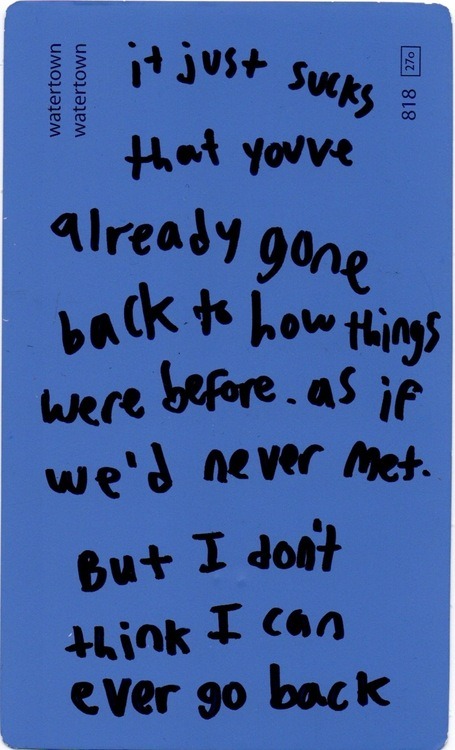 watertown
watertown
818 270
it just sucks
that youve
already gone
back to how things
were before. as if
we'd never met.
But I don't
think I can
ever go back